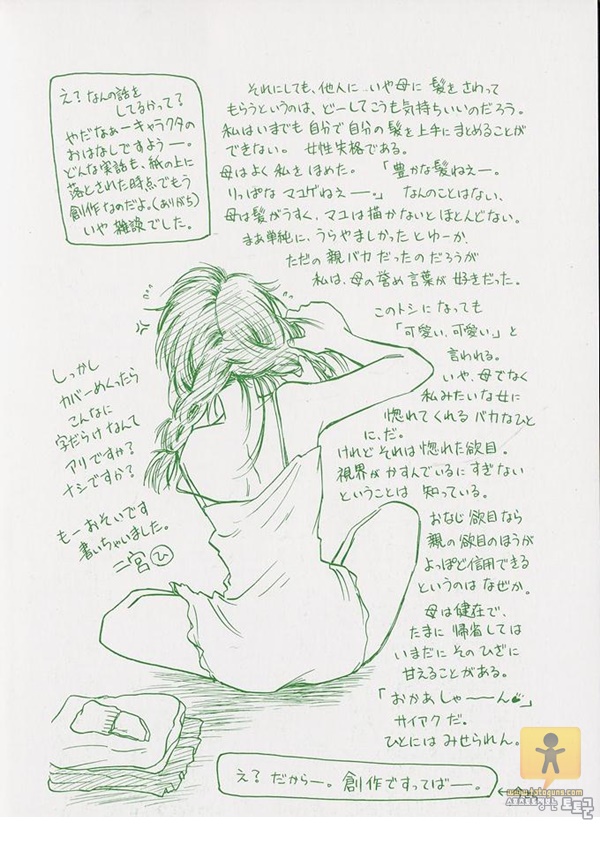 え？なんの話を
してるかって？
やだなぁーキャラクタの
おはなしですようー。
どんな実話も、紙の上に
落とされた時点でもう
創作なのだよ。(ありがち)
いや 雑談でした。
それにしても、他人に…いや母に 髪をさわって
もらうというのは、どーしてこうも気持ちいいのだろう。
私はいまでも自分で自分の髪を上手にまとめることが
できない。 女性失格である。
母はよく私をほめた。 「豊かな髪ねえー。
りっぱな マユゲねえー。」 なんのことはない、
母は髪がうすく、マユは描かないとほとんどない。
まあ単純に、うらやましかったとゆーか、
ただの親バカだったのだろうが
私は、母の誉め言葉が好きだった。
このトシになっても
「可愛い、可愛い。」と
言われる。
いや、母でなく
私みたいな女に
惚れてくれるバカなひと
に、だ。
けれどそれは惚れた欲目。
視界がかすんでいるにすぎない
ということは 知っている。
おなじ欲目なら
親の欲目のほうが
よっぽど信用できる
というのはなぜか。
母は健在で、
たまに帰省しては
いまだにそのひざに
甘えることがある。
「おかあしゃーーん」
サイアクだ。
ひとにはみせられん。
しっかし
カバーめくったら
こんなに
字だらけなんて
アリですか？
ナシですか？
もーおそいです
書いちゃいました。
二宮ひ
え？だからー。創作ですってばー。
www.totoguns.com
토토군